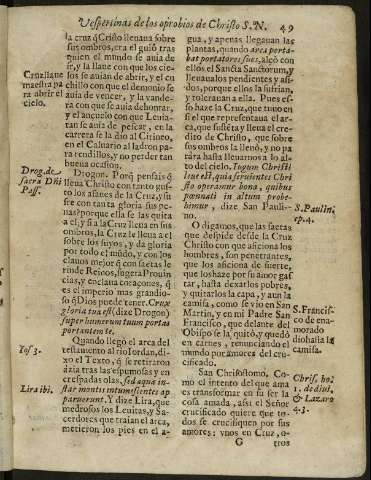 Vespertinas de los oprobios de Christo S. N. 49
la cruz q̃ Cristo lleuaua sobre
sus ombros, era el guiõ tras
quien el mundo se auia de
ir, y la llaue con que los cie-
los se auian de abrir, y el cu
chillo con que el demonio se
auia de vencer, y la vande-
ra con que se auia de honrar,
y el ançuelo con que Leuia-
tan se auia de pescar, en la
carrera se la dio al Cirineo,
en el Caluario al ladron pa-
ra rendillos, y no perder tan
buena ocasion.
Drogon. Porq̃ pensais q̃
lleua Christo con tanto gus-
to los afanes de la Cruz, y su
fre con tanta gloria sus pe-
nas? porque ella se las quita
a el, y si a la Cruz lleua en sus
ombros, la Cruz le lleua a el
sobre los suyos, y da gloria
por todo el mũdo, y con los
clauos mejor q̃ con saetas le
rinde Reinos, sugeta Prouin
cias, y enclaua coraçones, q̃
es el imperio mas grandio-
so q̃ Dios puede tener. Crux
gloria tua est (dize Drogon)
super humerum tuum portas
portantem te.
Quando llegó el arca del
testamento al rio Iordan, di-
xo el Texto, q̃ se retiraron
àzia tras las espumosas y en
crespadas olas, sed aqua in-
star montis intumescentes ap
paruerunt. Y dize Lira, que
medrosos los Leuitas, y Sa-
cerdotes que traian el arca,
metieron los pies en el a-
Cruz llaue
maestra pa
ra abrir el
cielo.
Drog. de
sacra Dñi
Pass.
Ios 3.
Lira ibi.
gua, y apenas llegauan las
plantas, quando arca porta-
bat portatores suos, alçò con
ellos el Sancta Sanctorum, y
lleuanalos pendientes y asi-
dos, porque ellos la sufrian,
y toleranan a ella. Pues es-
so haze la Cruz, que tuuo en
si el que representaua el ar-
ca, que sustẽta y lleua el cre-
dito de Christo, que sobre
sus ombros la lleuò, y no pa
rára hasta lleuarnos a lo al-
to del cielo. Iugum Christi
lux est, quia seruientes Chri
sto operamur bona, quibus
pœnnati in altum prohe-
bimur, dize San Pauli-
no.
O digamos, que las saetas
que despide desde la Cruz
Christo con que aficiona los
hombres, son penetrantes,
que los aficiona de suerte,
que los haze por su amor gas
tar, hasta dexarlos pobres,
y quitarlos la capa, y aun la
camisa, como se vio en San
Martin, y en mi Padre San
Francisco, que delante del
Obispo se la quitò, y quedò
en carnes, renunciando el
mundo por amores del cru-
cificado.
San Chrisostomo. Co-
mo el intento del que ama
es transformar en su ser la
cosa amada, assi el Señor
crucificado quiere que to-
dos se crucifiquen por sus
amores: vnos en Cruz, o-
G tros
S. Paulin.
ep. 4.
S. Francis-
co de ena-
morado
dio hasta la
camisa.
Chris. ho.
1. de diui.
& Lazaro
4. 3.